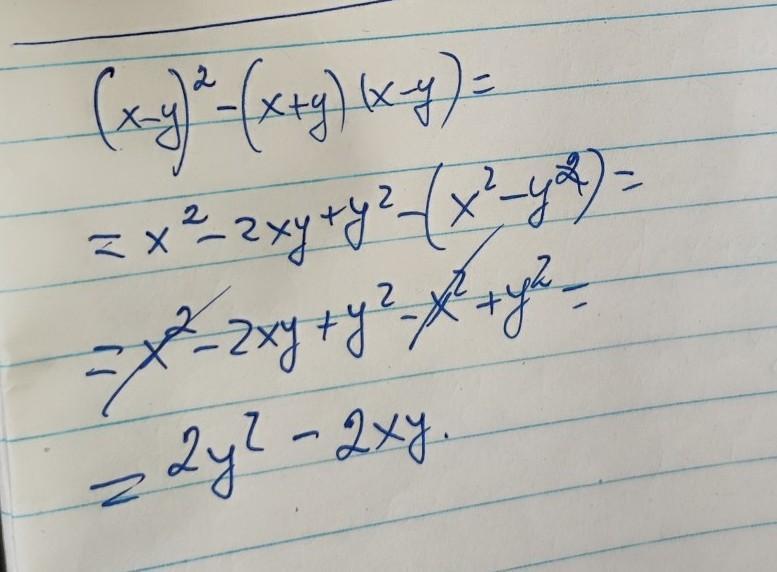 (x-y)² - (x+y)(x-y) =
= x² - 2xy + y² - (x² - y²) =
= x² - 2xy + y² - x² + y² =
= 2y² - 2xy.